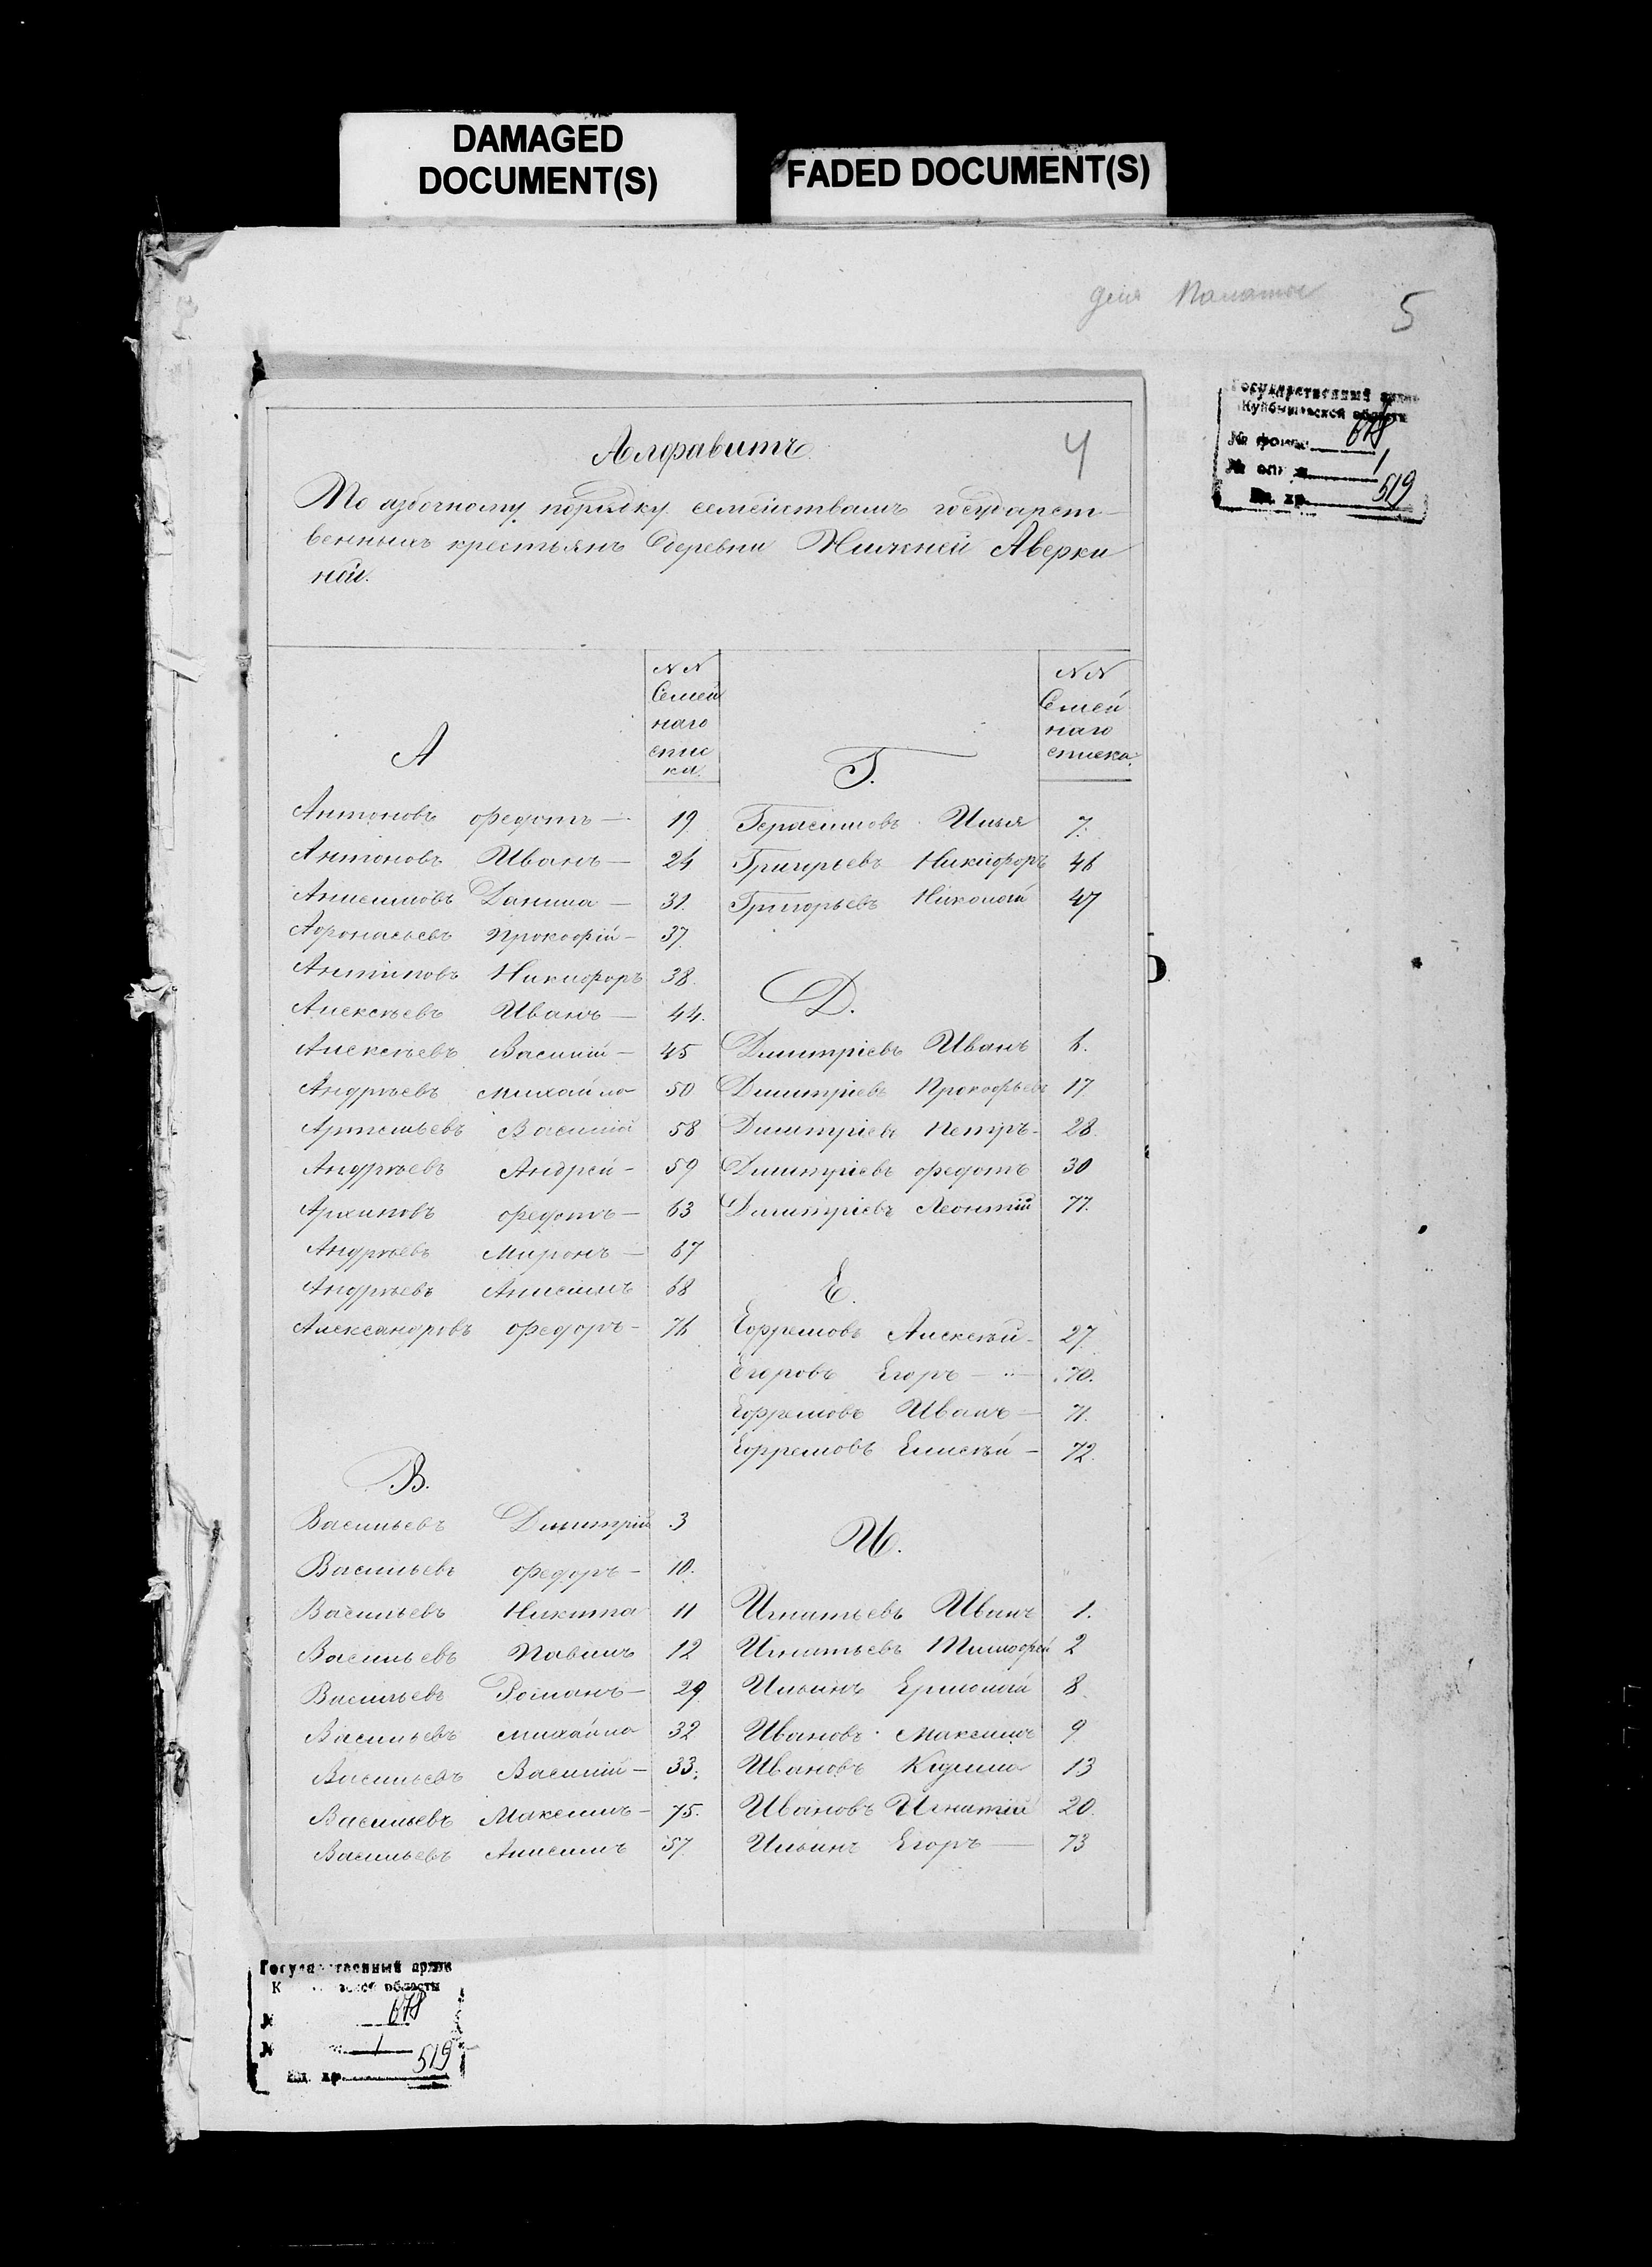 DAMAGED
DOCUMENT(S)
FADED DOCUMENT(S)
5
Государственный архив
Куйбышевской области
№ фонда 678
№ оп 1
Ед. хр. 519
4
Алфавитъ
По азбочному порядку семействамъ государст-
венныхъ крестьянъ Деревни Нижней Аверки
ной.
А
NN
Семей
наго
спис
ка.
Антоновъ Федотъ — 19
Антоновъ Иванъ — 24
Анисимовъ Данила — 31.
Афонасьевъ Прокофій — 37
Антиповъ Никифоръ 38.
Алексѣевъ Иванъ — 44.
Алексѣевъ Василій — 45
Андрѣевъ Михайло 50
Артемьевъ Василій 58
Андрѣевъ Андрей — 59
Архиповъ Федотъ — 63
Андрѣевъ Миронъ — 67
Андрѣевъ Анисимъ 68
Александровъ Федоръ — 76
В.
Васильевъ Димитрій 3
Васильевъ Федоръ — 10.
Васильевъ Никита 11
Васильевъ Павилъ 12
Васильевъ Романъ — 29
Васильевъ Михайло 32
Васильевъ Василій — 33.
Васильевъ Максимъ — 75.
Васильевъ Анисимъ 57
Г.
NN
Семей
наго
списка.
Герасимовъ Илья 7.
Григорьевъ Никифоръ 46
Григорьевъ Николай 47
Д.
Димитріевъ Иванъ 6.
Димитріевъ Прокофьевъ 17.
Димитріевъ Петръ — 28.
Димитріевъ Федотъ 30
Димитріевъ Леонтій 77.
Е.
Ефремовъ Алексѣй — 27.
Егоровъ Егоръ — 70.
Ефремовъ Иванъ — 71.
Ефремовъ Елисѣй — 72.
И.
Игнатьевъ Иванъ 1.
Игнатьевъ Тимофей 2
Ильинъ Ермолай 8.
Ивановъ Максимъ 9
Ивановъ Кузьма 13
Ивановъ Игнатій 20.
Ильинъ Егоръ — 73
Государственный архив
К области
№ 678
№ 1
Ед. хр. 519